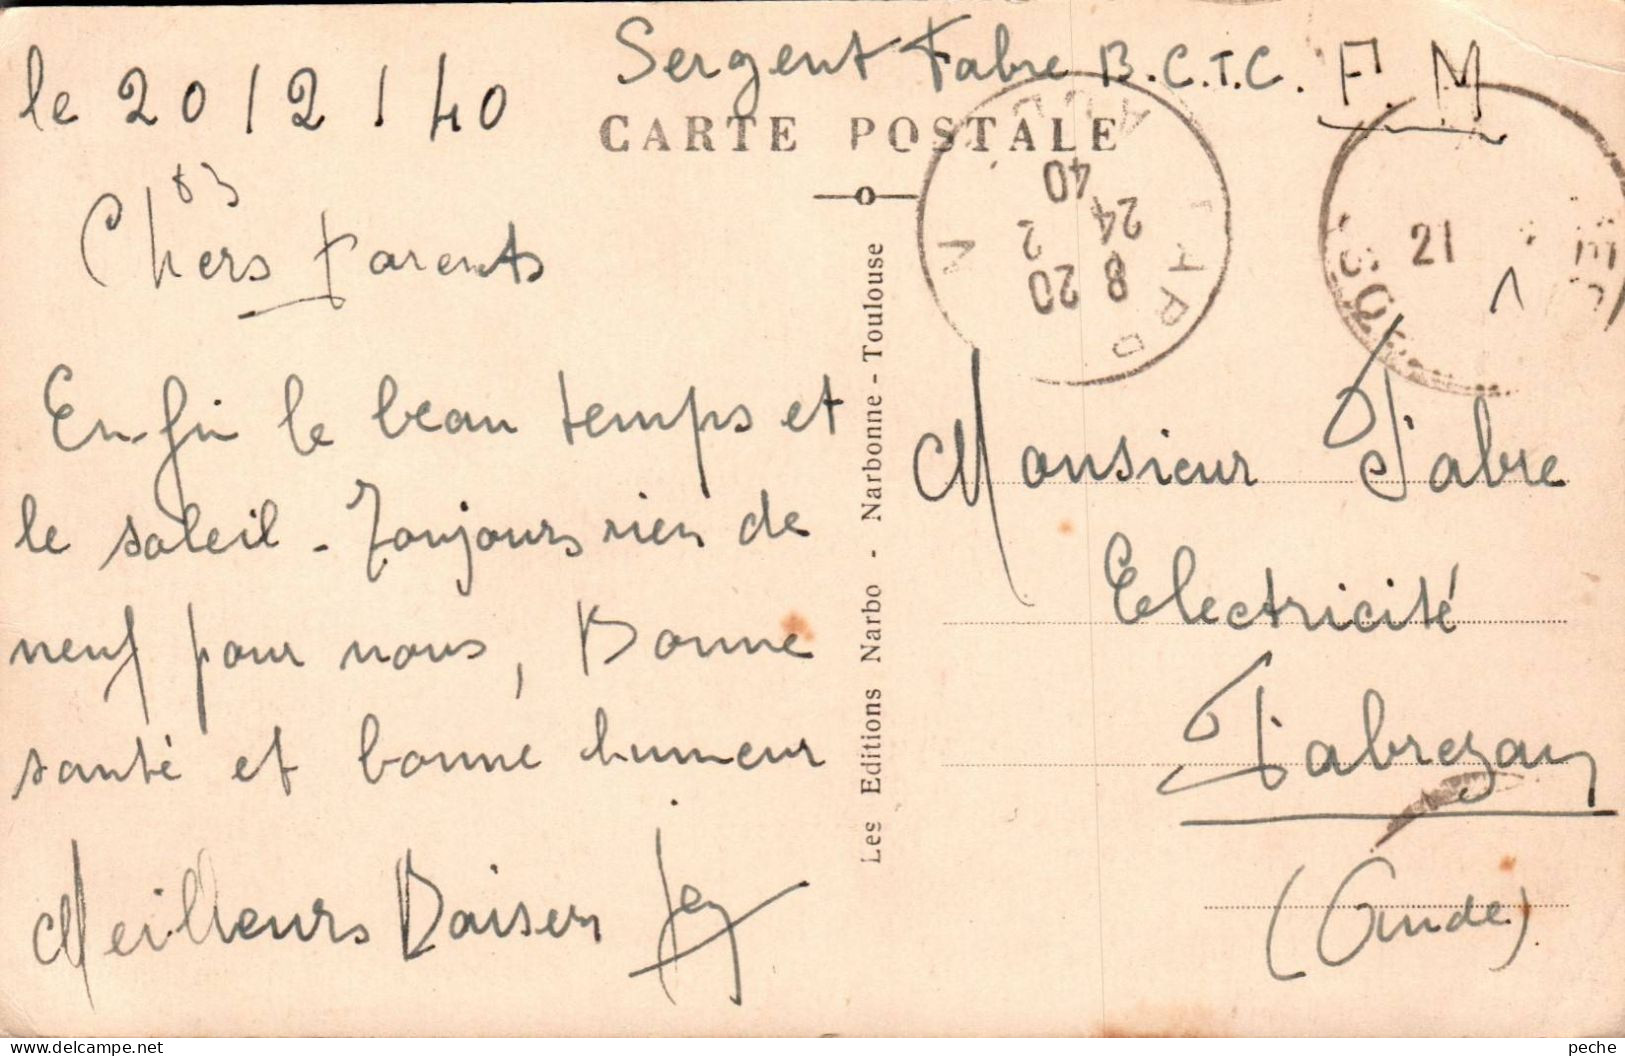 Sergent Fabre B.C.T.C. F. M
le 20/2/40
CARTE POSTALE
83
Chers Parents
Enfin le beau temps et
le soleil - Toujours rien de
neuf pour nous, Bonne
santé et bonne humeur
Meilleurs Baisers
Les Editions Narbo - Narbonne - Toulouse
8 20
24 2
40
21
Monsieur Fabre
Electricité
Fabrezan
(Aude)
peche